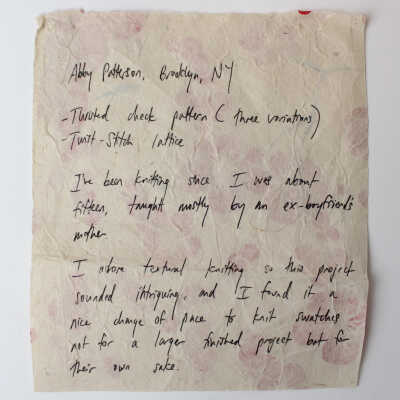 Abby Patterson, Brooklyn, NY
- Twisted check pattern (three variations)
- Twist-Stitch lattice
I've been knitting since I was about
fifteen, taught mostly by an ex-boyfriend's
mother.
I adore textural knitting so this project
sounded intriguing, and I found it a
nice change of pace to knit swatches
not for a larger finished project but for
their own sake.